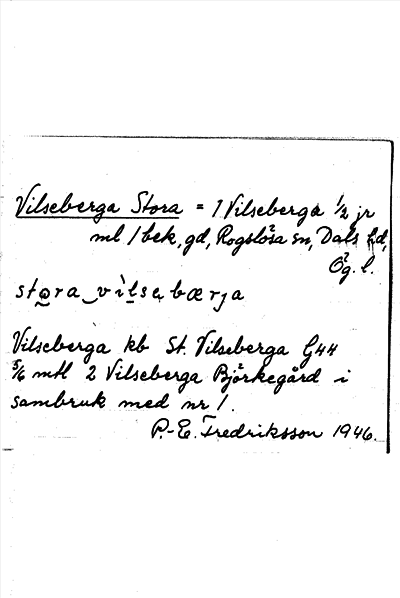 Vilseberga Stora = 1 Vilseberga 1/2 jr
ml /bek, gd, Rogslösa sn, Dals hd,
Ög. l.
stora vìlsebærja
Vilseberga kb St. Vilseberga G44
5/6 mtl 2 Vilseberga Björkegård i
sambruk med nr 1.
P.-E. Fredriksson 1946.